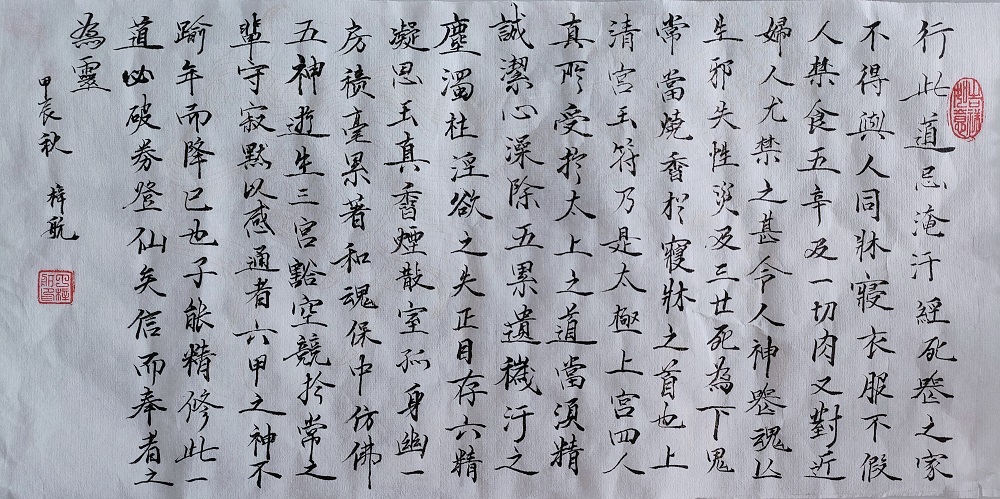 行此道忌淹汙經死喪之家
不得與人同牀寢衣服不假
人禁食五辛及一切肉又對近
婦人尤禁之甚令人神喪魂亡
生邪失性災及三世死為下鬼
常當燒香於寢牀之首也上
清宮玉符乃是太極上宮四人
真所受於太上之道當須精
誠潔心澡除五累遺穢汙之
塵濁杜淫欲之失正目存六精
凝思玉真香煙散室孤身幽一
房積毫累著和魂保中仿佛
五神遊生三宮豁空競於常之
輩守寂默以感通者六甲之神不
踰年而降已也子能精修此一
道必破券登仙矣信而奉者之
為靈
甲辰秋 梓航